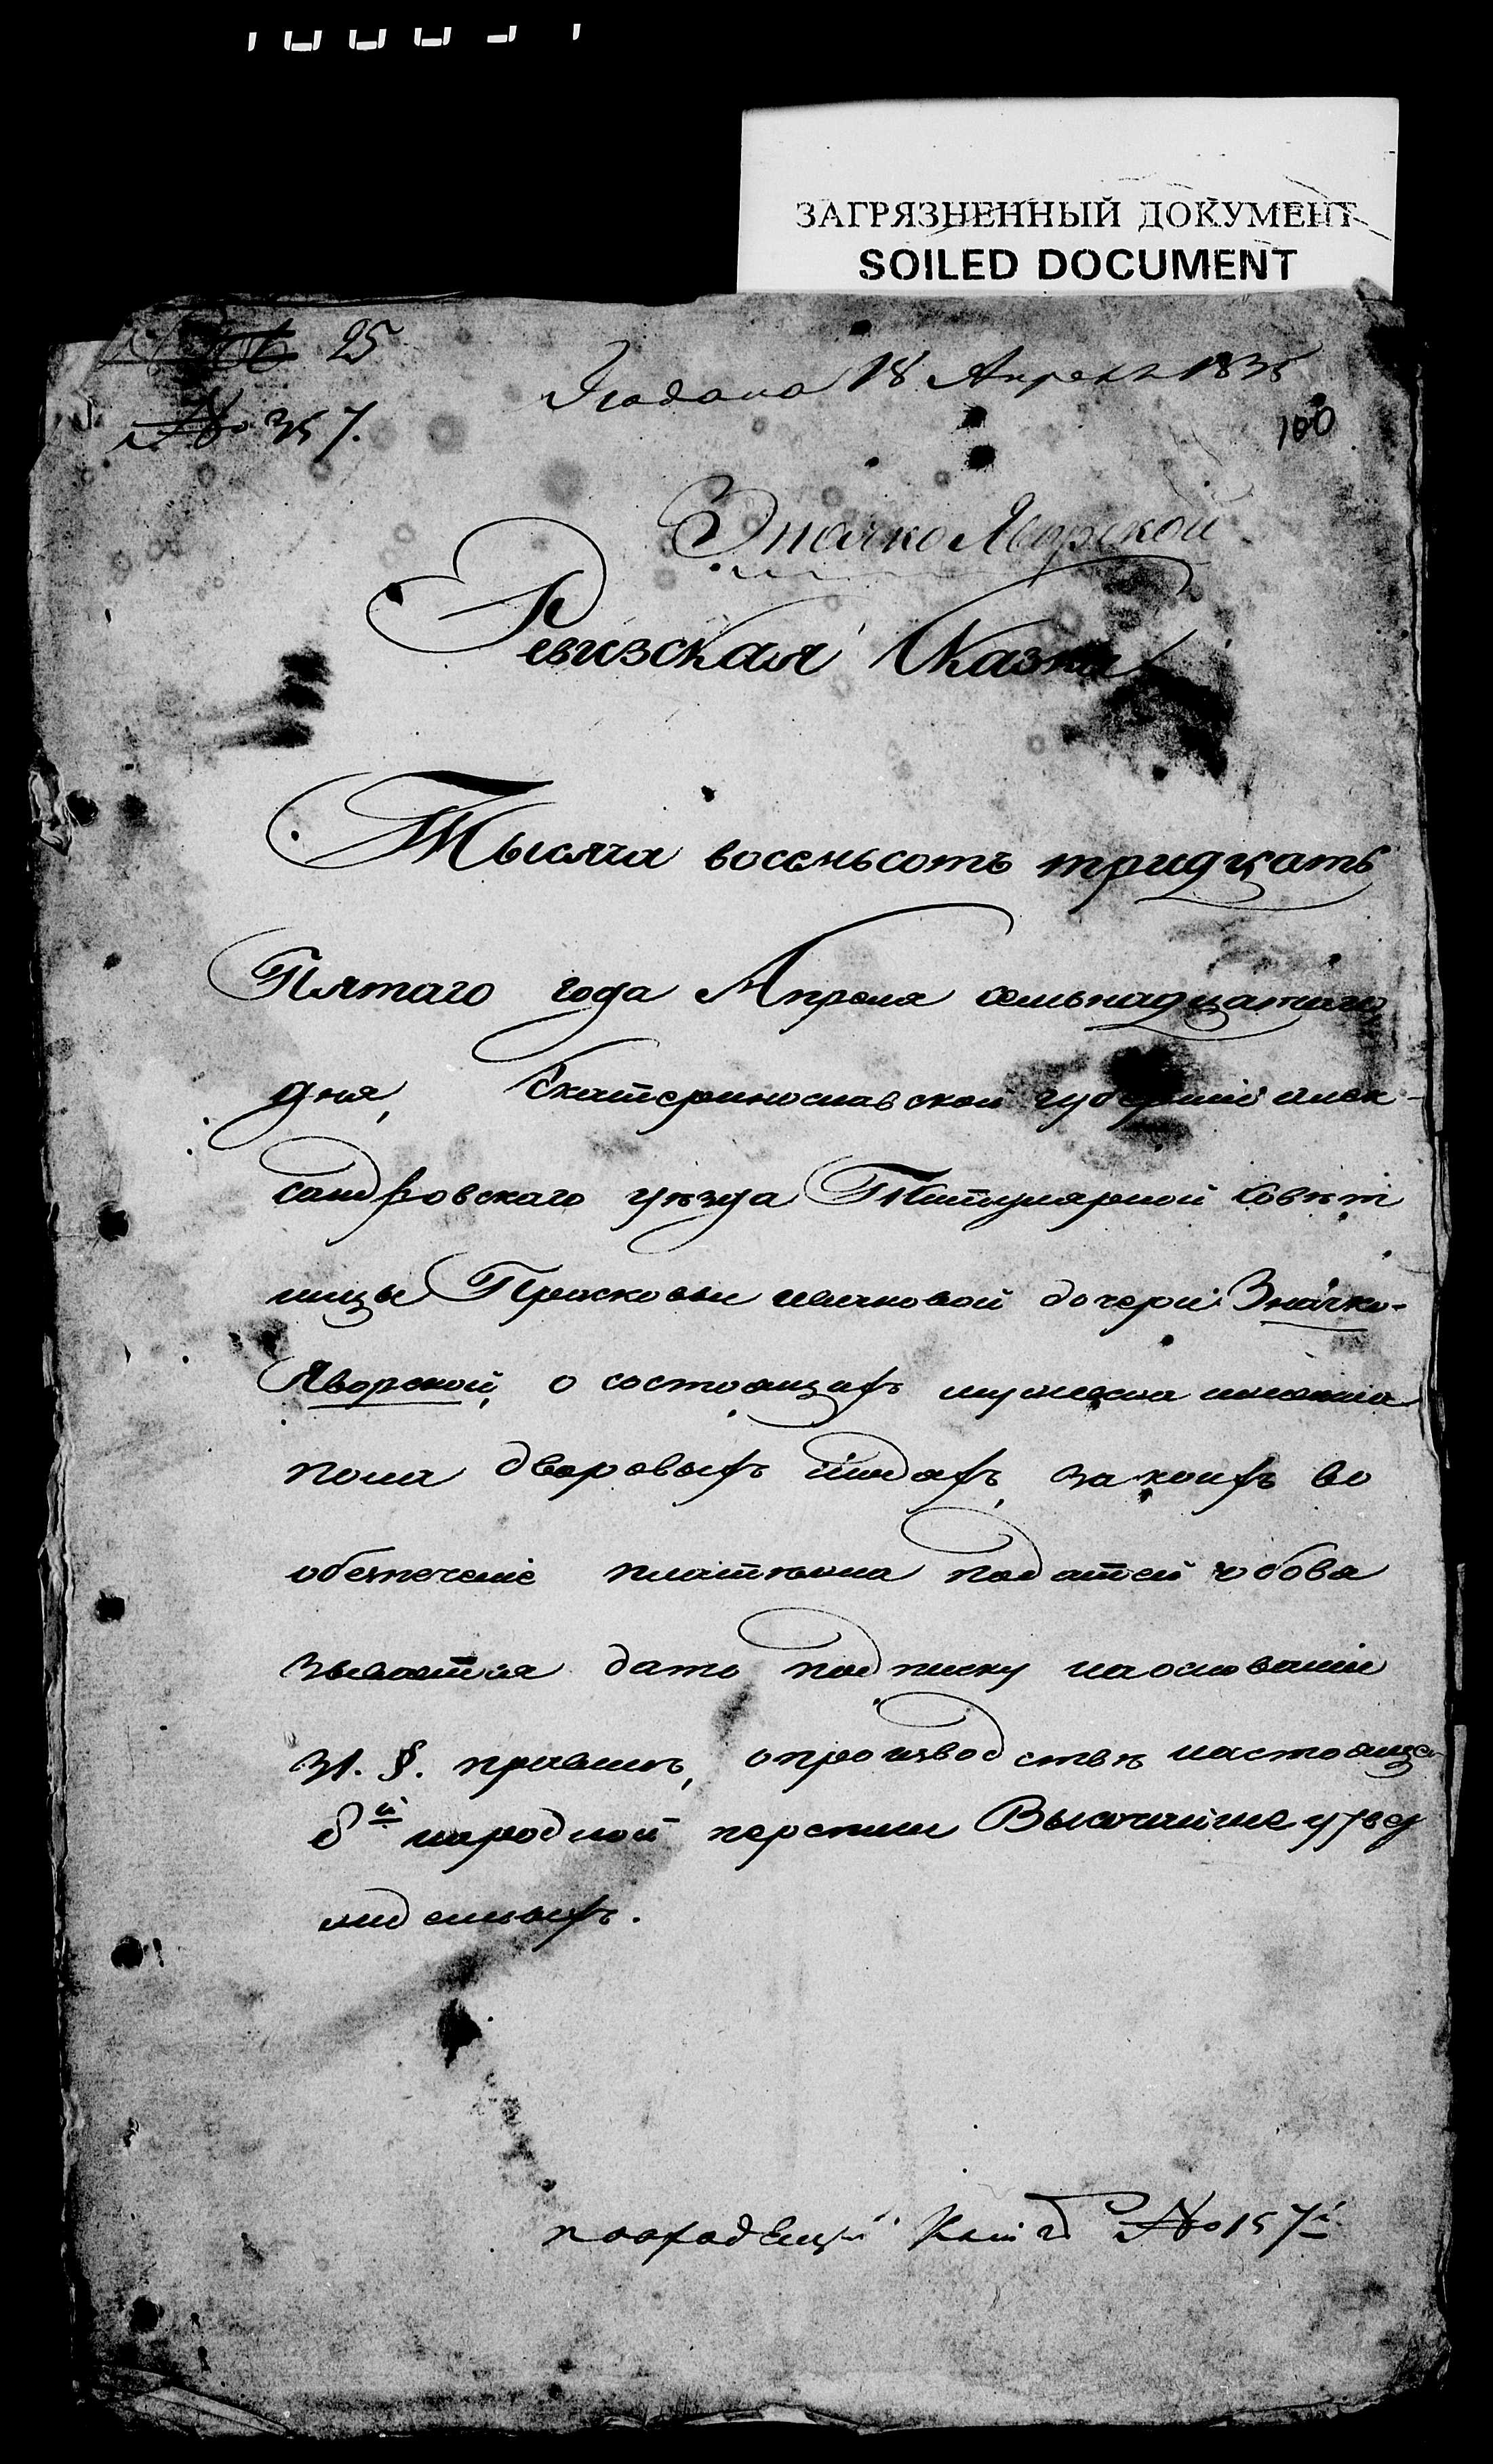 ЗАГРЯЗНЕННЫЙ ДОКУМЕНТ
SOILED DOCUMENT
25
Подана 18 Апреля 1835
№ 357.
100
Значко Яворской
Ревизская Сказка
Тысяча восемьсотъ тридцать
Пятаго года Апреля семьнадцатаго
дня, Екатеринославской губерніи алек-
сандровскаго уѣзда Титулярной Совѣт
ницы Прасковьи ивановой дочери Значко-
Яворской, о состоящихъ мужеска
пола дворовыхъ людяхъ, за коихъ во
обезпеченіе платежа податей обовя
зывается дать подписку на основаніи
31. §. правилъ, о производствѣ настояще
8й народной переписи Высочайше утвер
жденныхъ.
по входящей Книге № 157й